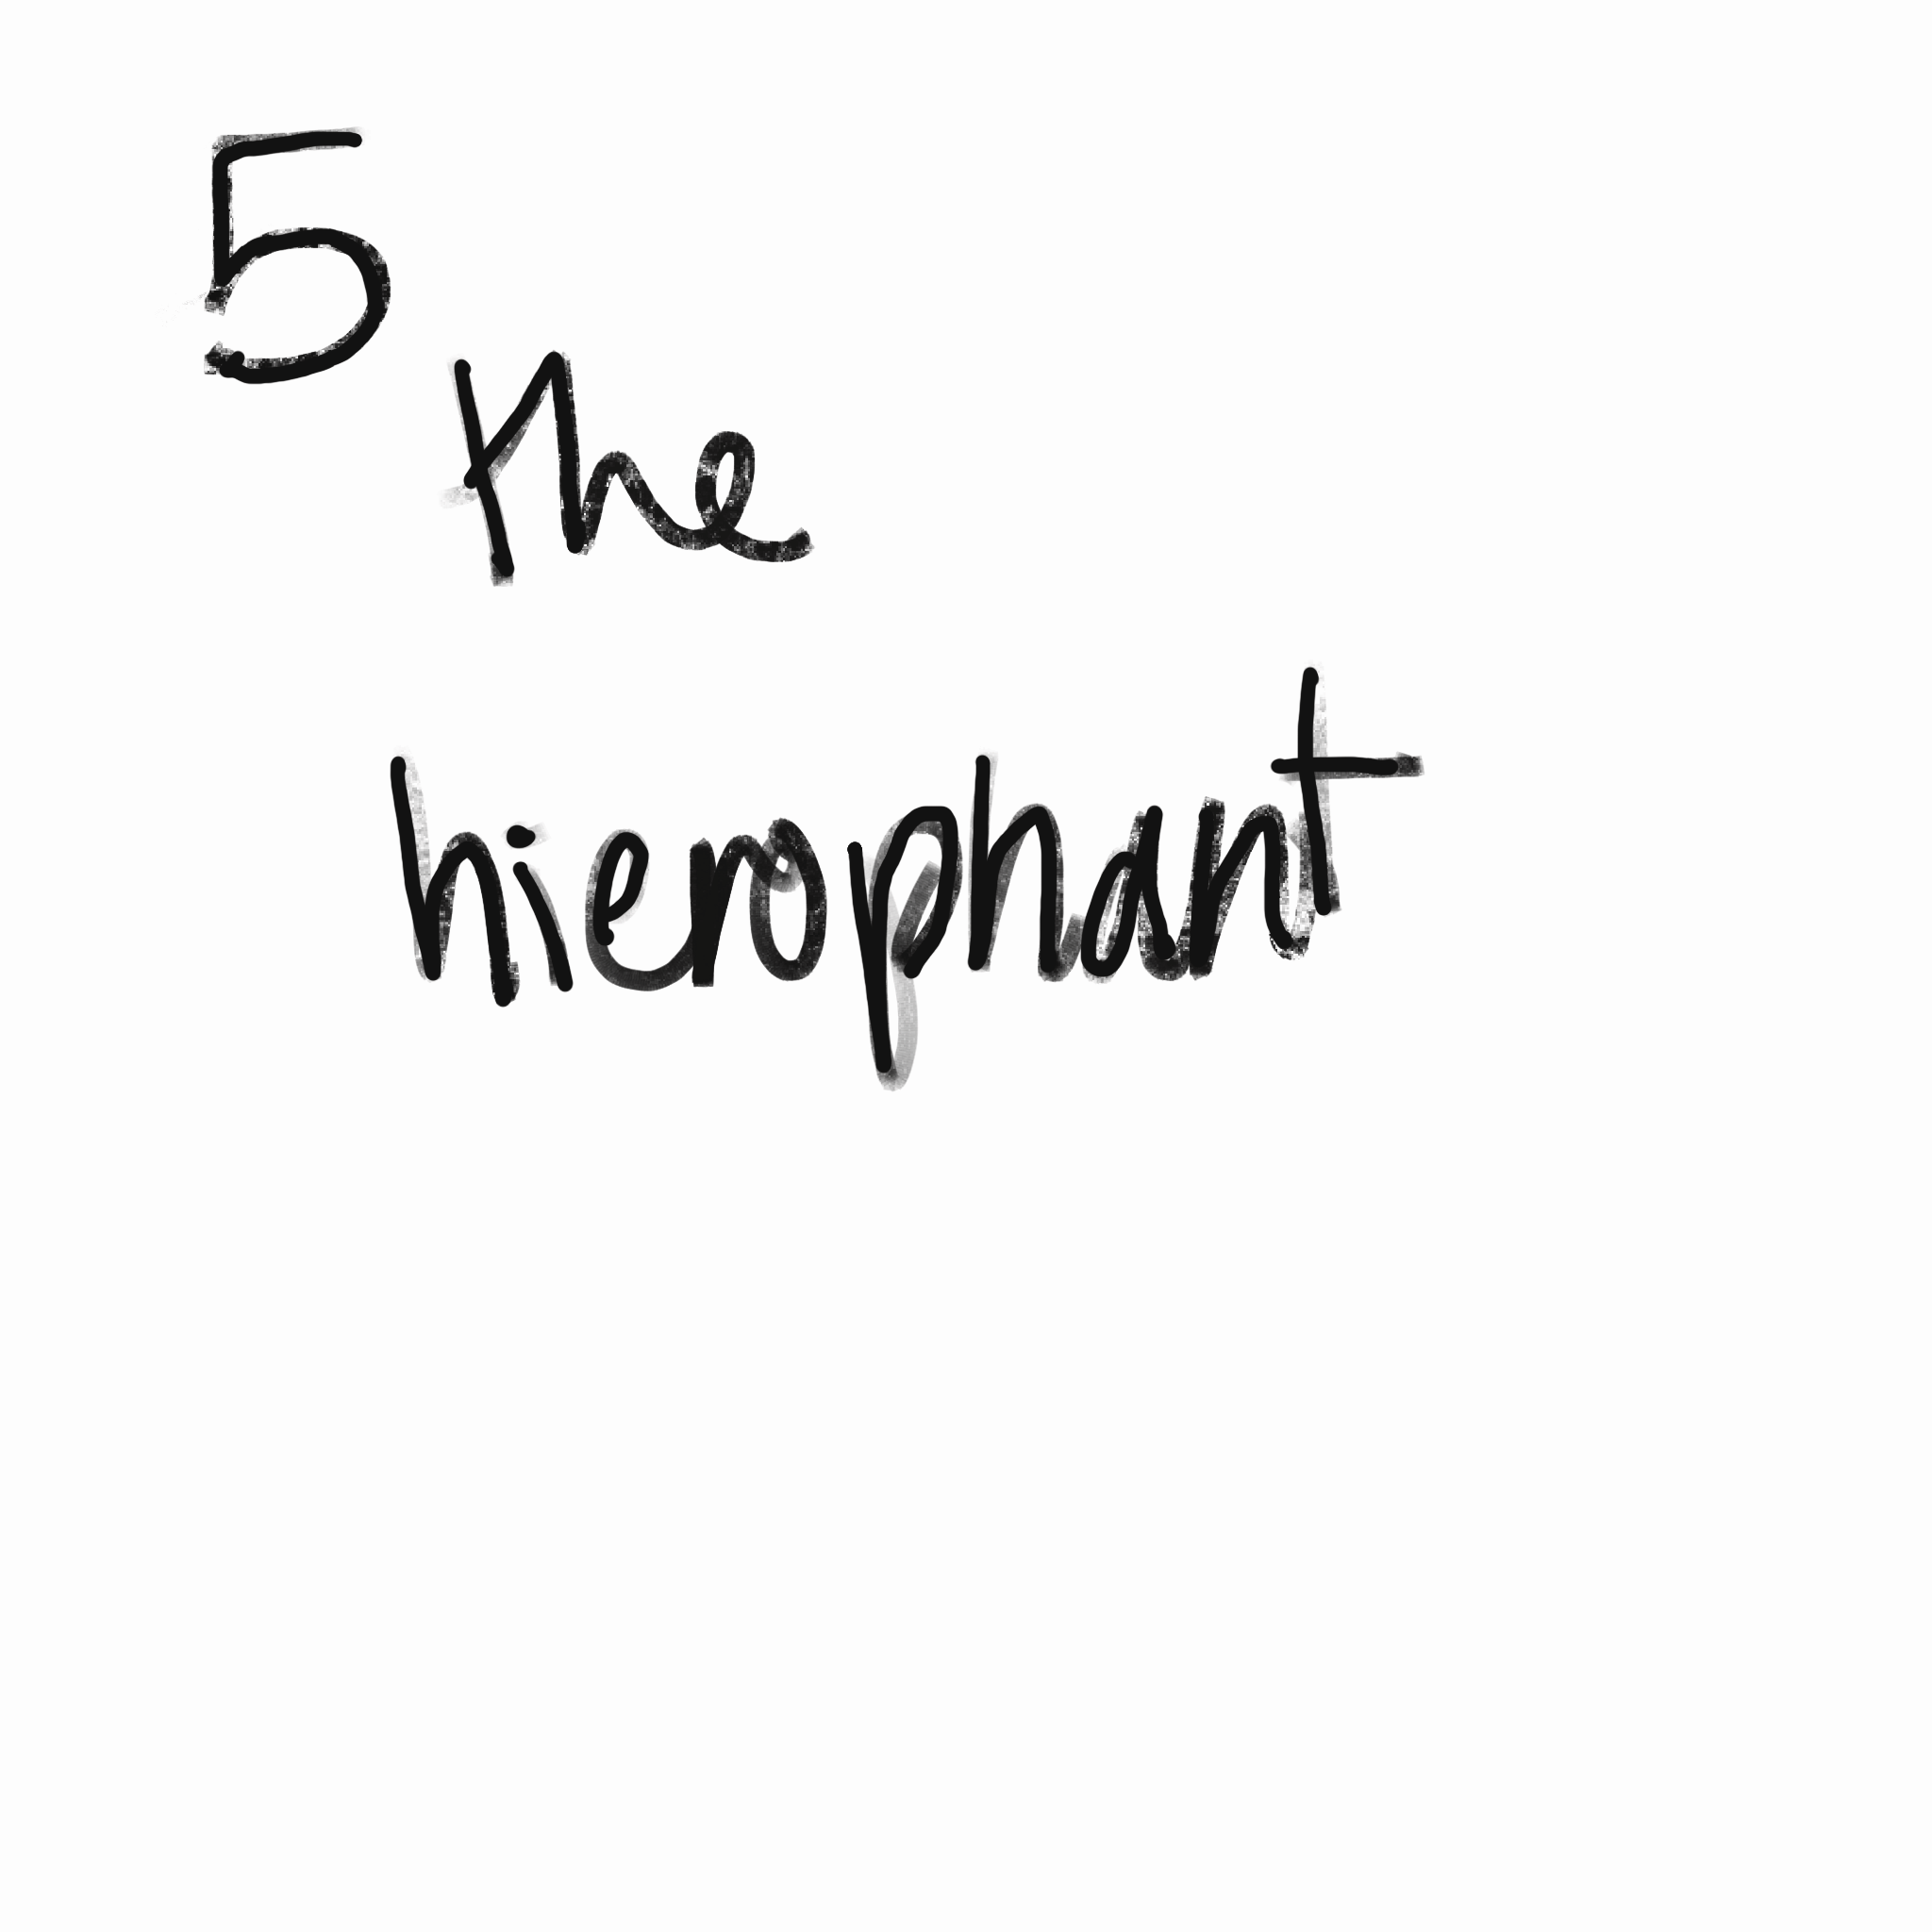 5
the
hierophant